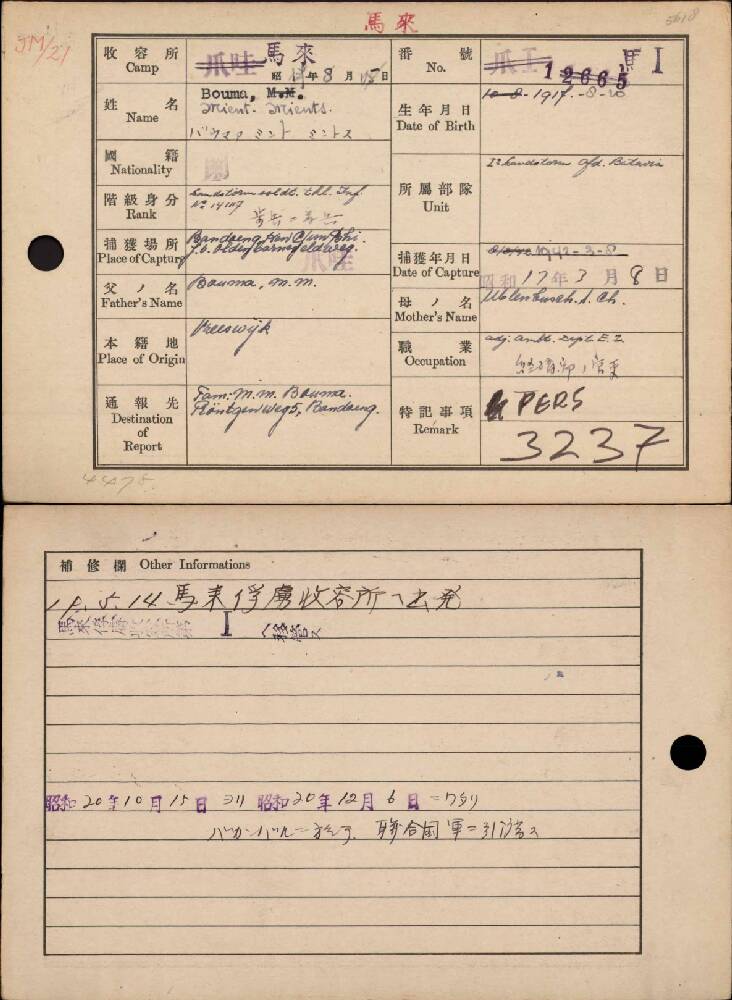 馬來
5618
JM/21
收容所 Camp 爪哇 馬來
昭 年 8 月 15 日
番號 No. 爪工 12665 馬 I
姓名 Name Bouma, M.M.
Mient. Mients.
バウマ ミント ミントス
生年月日 Date of Birth 10-8-1917.-8-10
國籍 Nationality 蘭
階級身分 Rank Landstorm soldt. Inf
No 14147
所屬部隊 Unit Ie Landstorm afd. Batavia
捕獲場所 Place of Capture Bandoeng
爪哇
捕獲年月日 Date of Capture 1942-3-8
昭和 17 年 3 月 8 日
父ノ名 Father's Name Bouma, m.m.
母ノ名 Mother's Name
本籍地 Place of Origin Vreeswijk
職業 Occupation adj. Dept. E.Z.
通報先 Destination of Report Fam: M.m. Bouma.
Röntgenweg 5, Bandoeng.
特記事項 Remark PERS
3237
4478.
補修欄 Other Informations
19.5.14 馬来俘虜收容所ヘ出発
馬来俘虜收容所第 I ヘ移管ス
昭和 20 年 10 月 15 日 ヨリ 昭和 20 年 12 月 6 日 ニワタリ
パカンバルニ於テ 聯合国軍ニ引渡ス